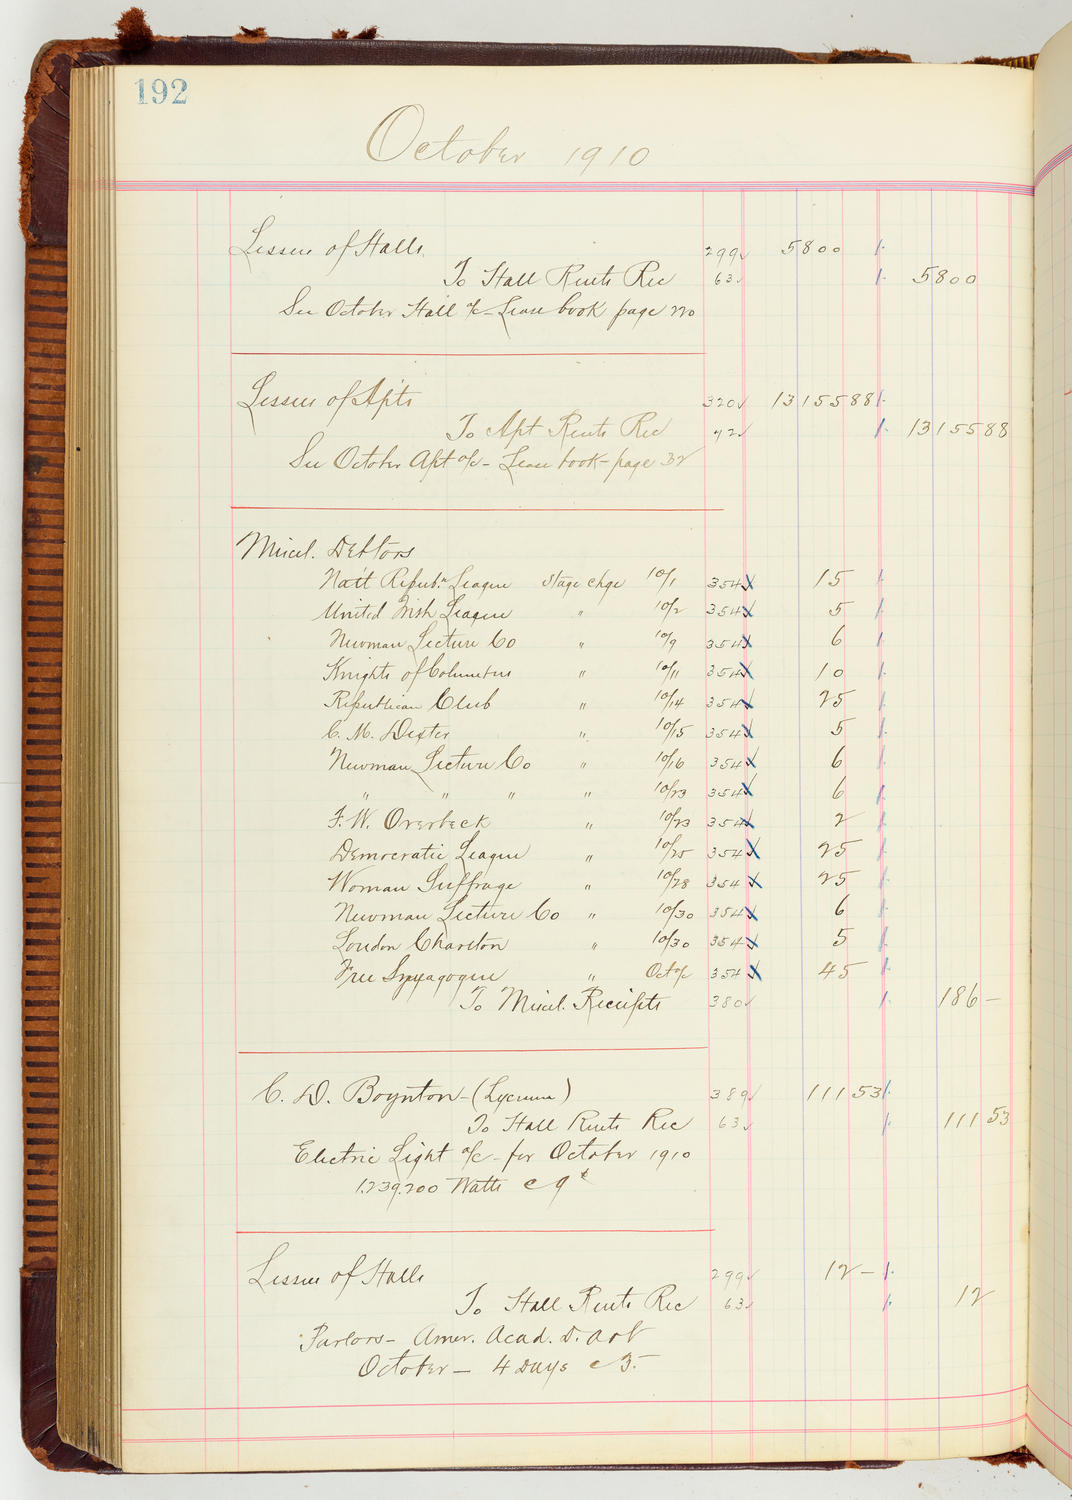 192
October 1910
Lessees of Halls 299 5800
To Hall Rents Rec 63 5800
See October Hall a/c - Lease book page 220
Lessees of Apts 320 13155 88
To Apt Rents Rec 42 13155 88
See October Apt a/c - Lease book - page 32
Miscl. Debtors
Nat'l Repub.n League Stage Chge 10/1 354 15
United Irish League " 10/2 354 5
Newman Lecture Co " 10/9 354 6
Knights of Columbus " 10/11 354 10
Republican Club " 10/14 354 25
C. M. Dexter " 10/15 354 5
Newman Lecture Co " 10/16 354 6
" " " " 10/23 354 6
F. W. Overbeck " 10/23 354 2
Democratic League " 10/25 354 25
Woman Suffrage " 10/28 354 25
Newman Lecture Co " 10/30 354 6
London Charlton " 10/30 354 5
Free Synagogue " Oct a/c 354 45
To Miscl. Receipts 380 186 -
C. D. Boynton - (Lyceum) 389 111 53
To Hall Rents Rec 63 111 53
Electric Light a/c - for October 1910
1.239.200 Watts @ 9¢
Lessees of Halls 299 12 -
To Hall Rents Rec 63 12
Parlors - Amer. Acad. D. Art
October - 4 Days @ 3.-